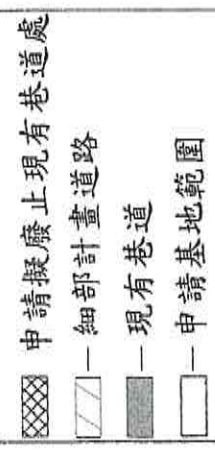 申請擬廢止現有巷道處
細部計畫道路
現有巷道
申請基地範圍